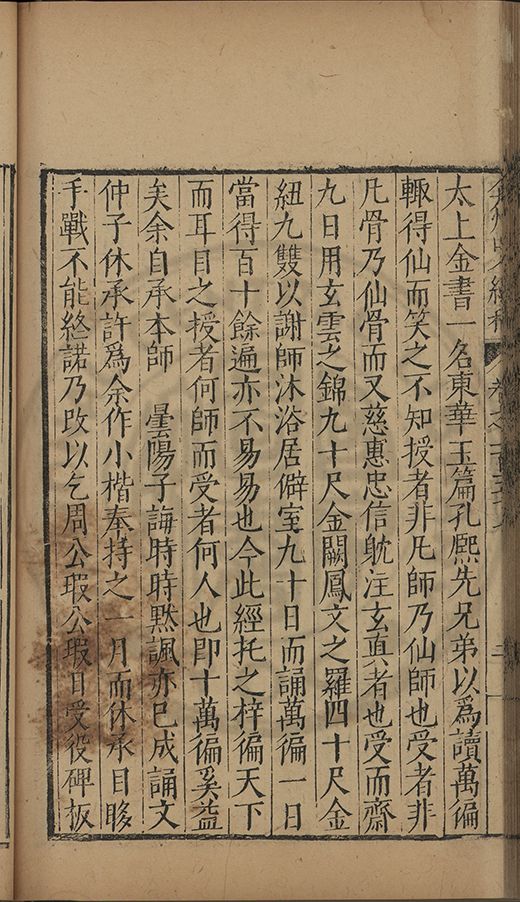 太上金書一名東華玉篇孔熈先兄弟以爲讀萬徧
輙得仙而笑之不知授者非凡師乃仙師也受者非
凡骨乃仙骨而又慈惠忠信躭注玄真者也受而齋
九日用玄雲之錦九十尺金闕鳳文之羅四十尺金
紐九雙以謝師沐浴居僻室九十日而誦萬徧一日
當得百十餘遍亦不易易也今此經托之梓徧天下
而耳目之授者何師而受者何人也即十萬徧奚益
矣余自承本師　曇陽子誨時時黙諷亦巳成誦文
仲子休承許爲余作小楷奉持之一月而休承目眵
手戰不能終諾乃改以乞周公瑕公瑕日受役碑板